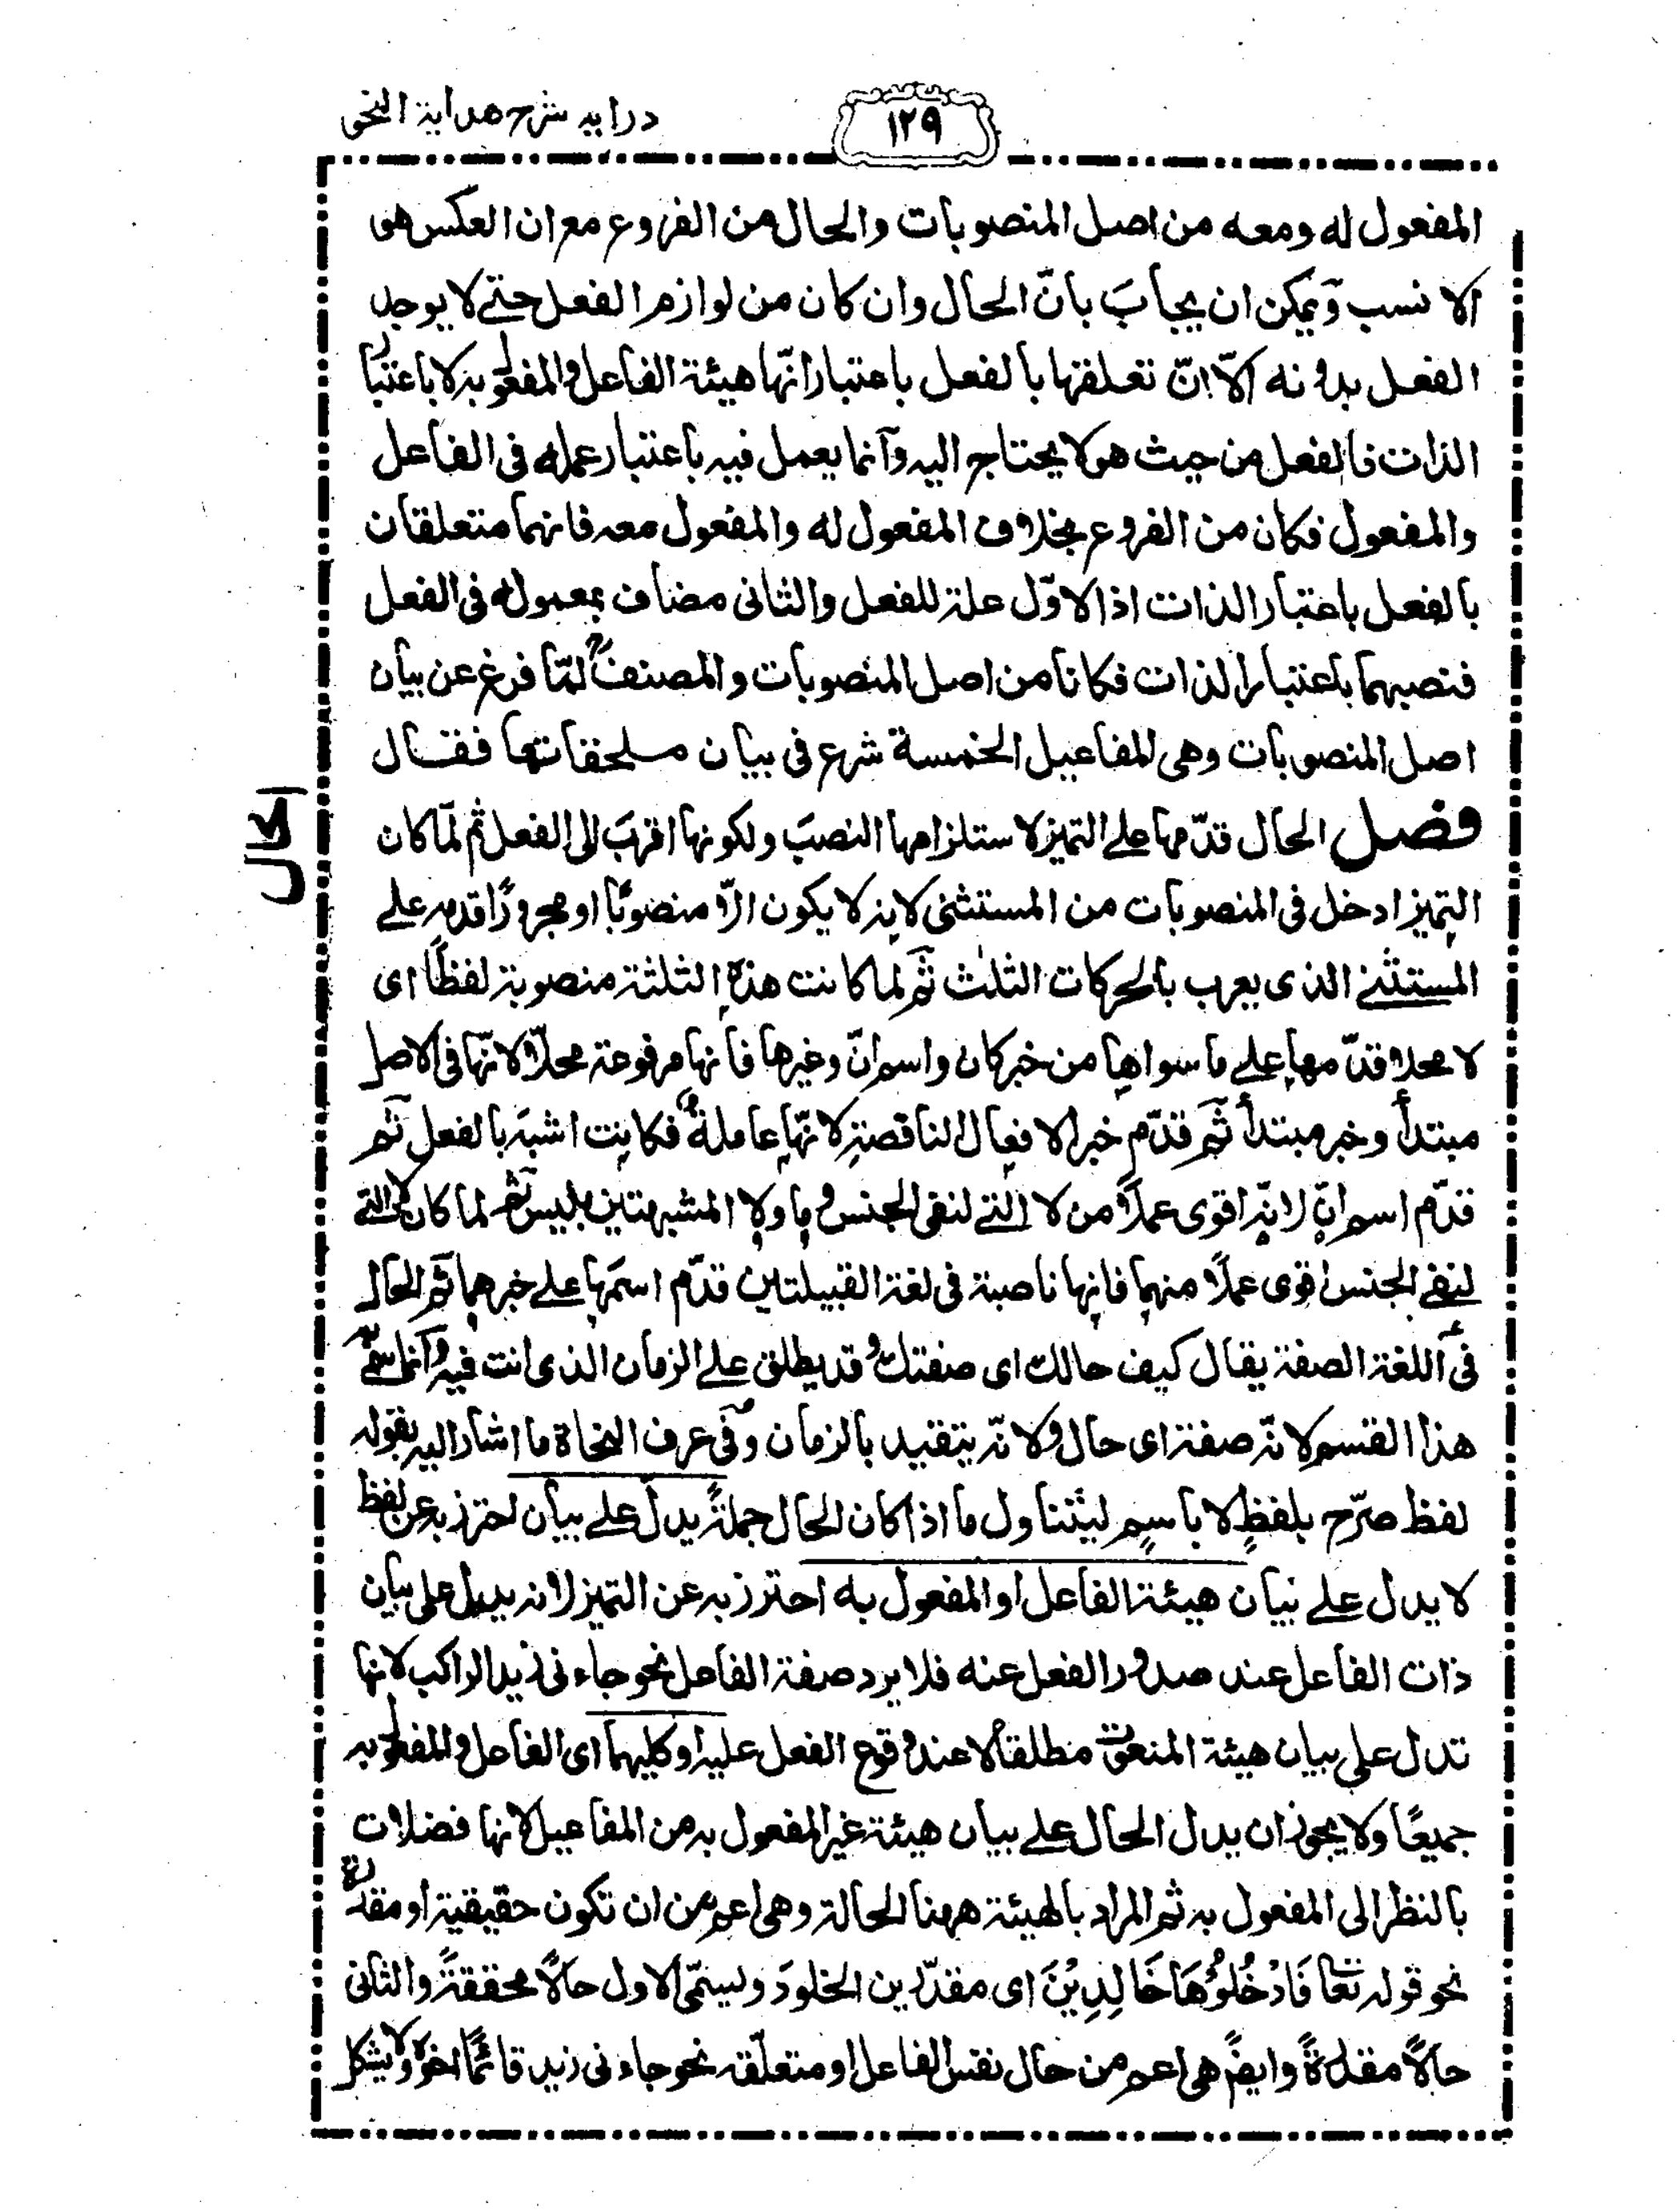 درايه شرح هداية النحو
١٢٩
المفعول له ومعه من اصل المنصوبات والحال من الفروع مع ان العكس هو
الا نسب وَيمكن ان يجابَ بانّ الحال وان كان من لوازم الفعل حتى لا يوجد
الفعل بدونه الّا انّ تعلقها بالفعل باعتبار انّها هيئة الفاعل والمفعول به لا باعتبار
الذات فالفعل من حيث هو لا يحتاج اليه وآنما يعمل فيه باعتبار عمله فى الفاعل
والمفعول فكان من الفروع بخلاف المفعول له والمفعول معه فانهما متعلقان
بالفعل باعتبار الذات اذ الاوّل علة للفعل والثانى مضاف بمعموله فى الفعل
فنصبهما باعتبار الذات فكانا من اصل المنصوبات والمصنفؒ لمّا فرغ عن بيان
اصل المنصوبات وهى المفاعيل الخمسة شرع فى بيان ملحقاتها فقال
فصل الحال قدّمها على التميز لا ستلزامها النصبَ ولكونها اقربَ الى الفعل ثم لمّا كان
التميز ادخل فى المنصوبات من المستثنى لانه لا يكون الّا منصوبًا او مجرورًا قدمه على
المستثنى الذى يعرب بالحركات الثلٰث ثم لما كانت هذه الثلثة منصوبة لفظًا اى
لا محلا قدّمها على ما سواها من خبر كان واسم انّ وغيرها فانها مرفوعة محلّا لانّها فى الاصل
مبتدأ وخبر مبتدأ ثم قدّم خبر الا فعال الناقصة لانّها عاملة فكانت اشبه بالفعل ثم
قدّم اسم انّ لانّه اقوى عملًا من لا التى لنفى الجنس وما ولا المشبهتين بليس ثم لما كان لا التى
لنفى الجنس اقوى عملًا منهما فانها ناصبة فى لغة القبيلتين قدّم اسمَها على خبرهما ثم الحال
فى اللغة الصفة يقال كيف حالك اى صفتك وقد يطلق على الزمان الذى انت فيه وآنما سمّى به
هذا القسم لانّه صفة اى حال ولانّه يتقيد بالزمان وفى عرف النحاة ما اشار اليه بقوله
لفظ صرّح بلفظٍ لا باسمٍ ليتناول ما اذا كان الحال جملةً يدلّ على بيان احترز به عن لفظ
لا يدل على بيان هيئة الفاعل او المفعول به احترز به عن التميز لانه يدل على بيان
ذات الفاعل عند صدور الفعل عنه فلا يرد صفة الفاعل نحو جاءنى زيد الراكب لانها
تدل على بيان هيئة المنعوت مطلقًا لا عند وقوع الفعل عليه او كليهما اى الفاعل والمفعول به
جميعًا ولا يجوز ان يدل الحال على بيان هيئة غير المفعول به من المفاعيل لانها فضلات
بالنظر الى المفعول به ثم المراد بالهيئة ههنا الحالة وهى اعم من ان تكون حقيقية او مقدرة
نحو قوله تعا فَادْخُلُوْهَا خَالِدِيْنَ اى مقدّرين الخلودَ ويسمّى الاول حالًا محققةً والثانى
حالًا مقدرةً وايضً هى اعم من حال نفس الفاعل او متعلّقه نحو جاءنى زيد قائمًا اخوه ولا يشكل
الحال